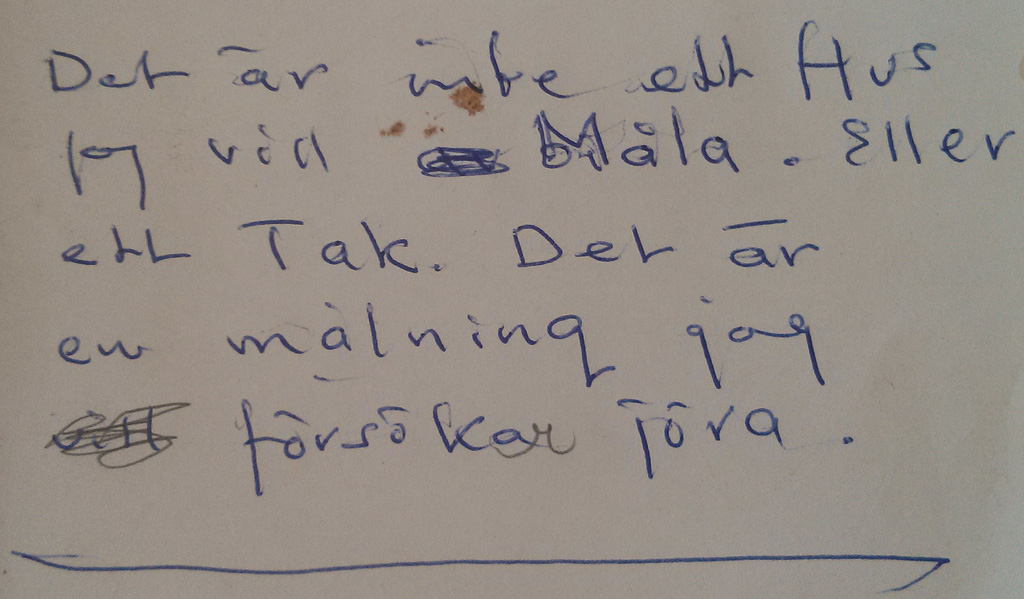 Det är inte ett Hus
jag vill Måla. Eller
ett Tak. Det är
en målning jag
försökar jöra.